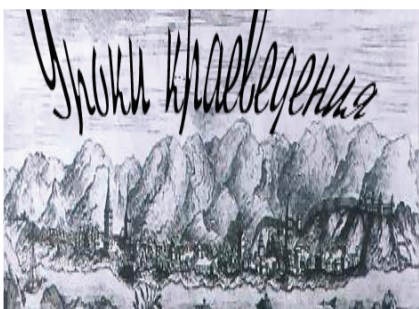 Уроки краеведения